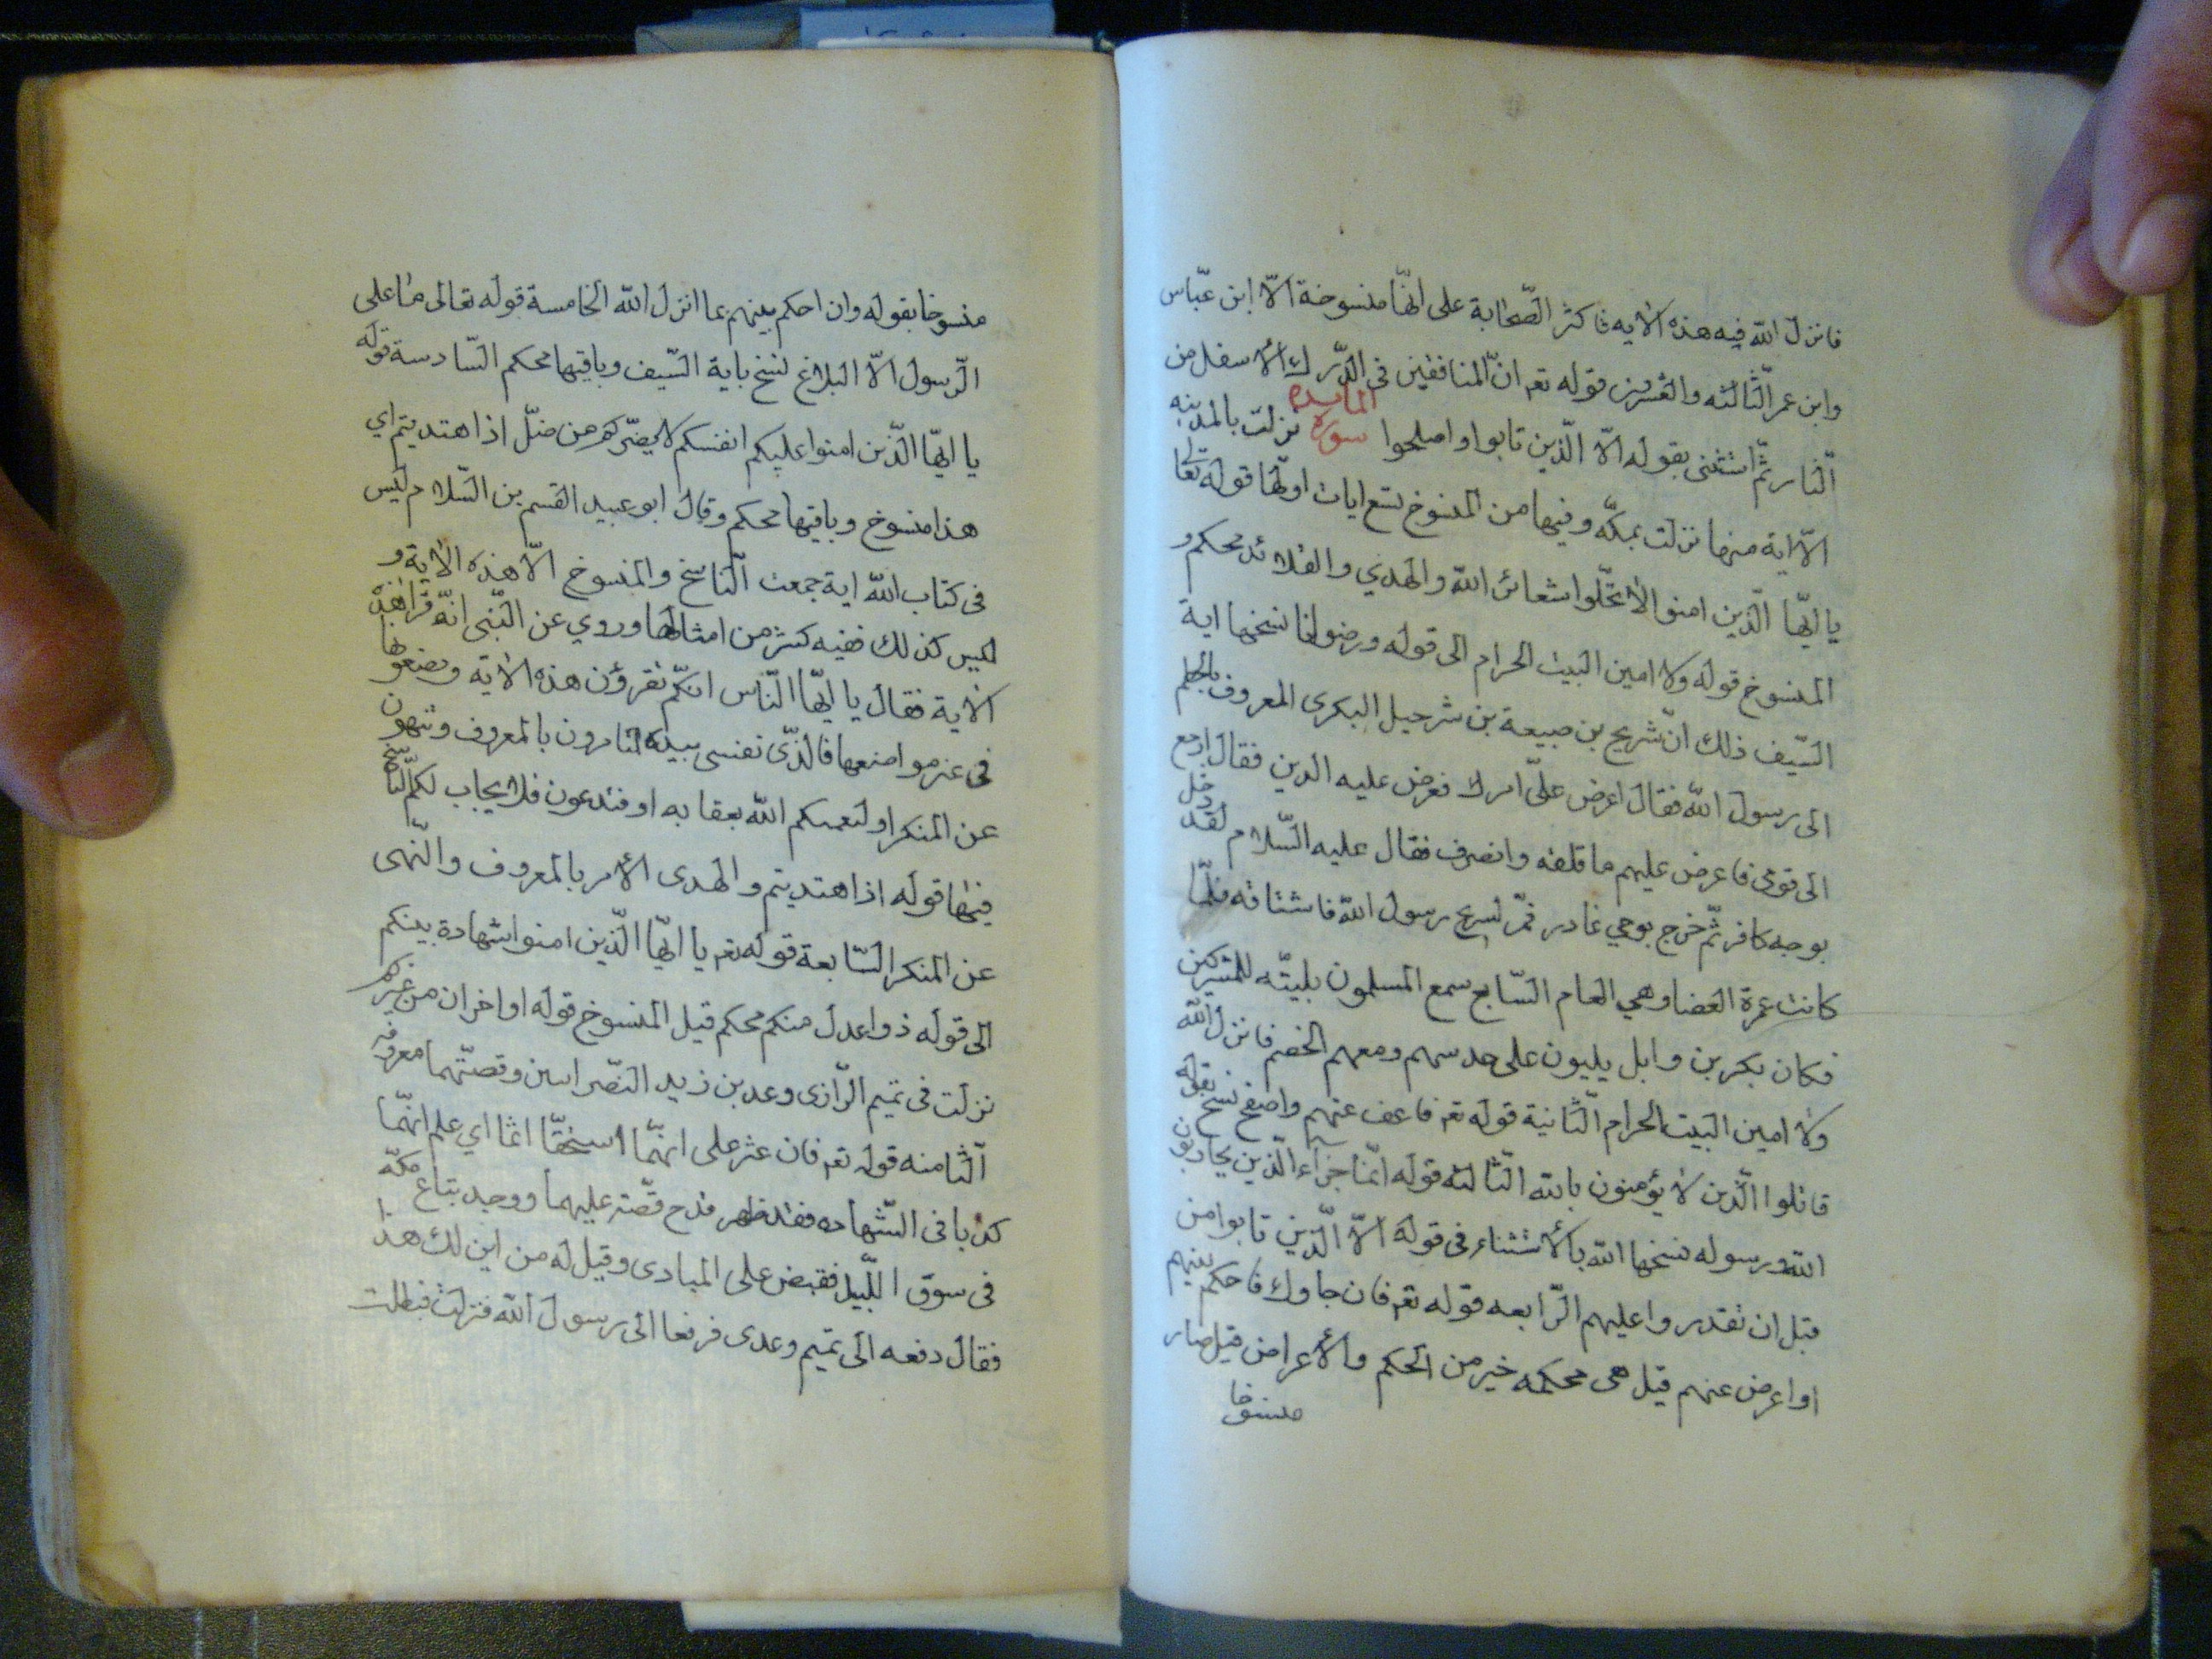 فانزل الله فيه هذه الايه فاكثر الصّحابة على انّها منسوخة الّا ابن عبّاس
وابن عمر الثّالثه والعشرين قوله تعم انّ المنافقين في الدّرك الأسفل من
النّار ثمّ استثنى بقوله الّا الّذين تابوا واصلحوا سورة المايده نزلت بالمدينه
الّا اية منها نزلت بمكّه وفيها من المنسوخ تسع ايات اولها قوله تعالى
يا ايّها الّذين امنوا لا تحلّوا شعائر الله والهدي والقلائد محكم و
المنسوخ قوله ولا امين البيت الحرام الى قوله ورضوانا نسخها اية
السّيف ذلك انّ شريح بن ضبيعة بن شرحيل البكرى المعروف بالحطم
الى رسول الله فقال اعرض علىّ امرك فعرض عليه الدين فقال ارجع
الى قومى فاعرض عليهم ما قلته وانصرف فقال عليه السّلام لقد دخل
بوجه كافر ثمّ خرج بوجي غادر فمّر لسرح رسول الله فاستاقه فلمّا
كانت عمرة القضا وهي العام السّابع سمع المسلمون بلبيّه للمشركين
فكان بكر بن وابل يلبون على حدسهم ومعهم الخضم فانزل الله
ولا امين البيت الحرام الثّانية قوله تعم فاعف عنهم واصفح نسخ بقوله
قاتلوا الّذين لا يؤمنون بالله الثّالثه قوله انّما جزاء الّذين يحاربون
الله ورسوله نسخها الله بالأستثناء فى قوله الّا الّذين تابوا من
قبل ان تقدروا عليهم الرّابعه قوله تعم فان جاوك فاحكم بينهم
او اعرض عنهم قيل هى محكمه خير من الحكم والأعراض قيل صار
منسوخا
منسوخا بقوله وان احكم بينهم بما انزل الله الخامسة قوله تعالى ما على
الرّسول الّا البلاغ نسخ باية السّيف وباقيها محكم السّادسة قوله
يا ايّها الّذين امنوا عليكم انفسكم لا يضرّكم من ضلّ اذا اهتديتم اي
هذا منسوخ وباقيها محكم وقال ابو عبيد القسم بن السّلام ليس
فى كتاب الله اية جمعت النّاسخ والمنسوخ الّا هذه الاية و
ليس كذلك ففيه كثر من امثالها وروي عن النّبى انّه قرا هذه
الاية فقال يا ايّها النّاس انكّم تقرؤن هذه الاية وتضعوها
فى غير مواضعها فالّذى نفسى بيده لتامرون بالمعروف وتنهون
عن المنكر او لتعمكم الله بعقابه او فتدعون فلا يجاب لكم النّاسخ
فيها قوله اذا اهتديتم والهدى الأمر بالمعروف والنّهى
عن المنكر السّابعة قوله تعم يا ايّها الّذين امنوا شهادة بينكم
الى قوله ذوا عدل منكم محكم قيل المنسوخ قوله او اخران من غيركم
نزلت فى تميم الرّازى وعد بن زيد النّصراسين وقصّتهما معروفه
الثّامنه قوله تعم فان عثر على انهّما استحقّا اثما اي علم انهّما
كذبا فى الشّهاده فقد ظهر قدح قصّته عليهما ووجد بتاع مكّه
فى سوق اللّيل فقبض على المبادى وقيل له من اين لك هذا
فقال دفعه الى تميم وعدى فرفعا الى رسول الله فنزلت فبطلت